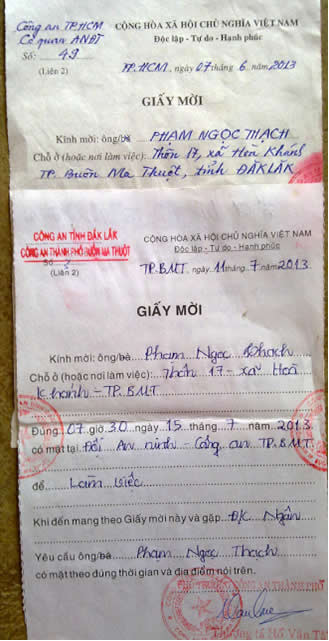 Công an TP.HCM
Cơ quan ANĐT
CỘNG HÒA XÃ HỘI CHỦ NGHĨA VIỆT NAM
Độc lập - Tự do - Hạnh phúc
Số: 49
(Liên 2)
TP.HCM, ngày 07 tháng 6 năm 2013
GIẤY MỜI
Kính mời: ông/bà PHẠM NGỌC THẠCH
Chỗ ở (hoặc nơi làm việc): Thôn 17, xã Hoà Khánh
TP. Buôn Ma Thuột, tỉnh ĐĂKLĂK
CÔNG AN TỈNH ĐẮK LẮK
CÔNG AN THÀNH PHỐ BUÔN MA THUỘT
CỘNG HÒA XÃ HỘI CHỦ NGHĨA VIỆT NAM
Độc lập - Tự do - Hạnh phúc
Số
(Liên 2)
TP.BMT, ngày 11 tháng 7 năm 2013
GIẤY MỜI
Kính mời: ông/bà Phạm Ngọc Thạch
Chỗ ở (hoặc nơi làm việc): Thôn 17 - xã Hoà
Khánh - TP. BMT
Đúng 07 giờ 30 ngày 15 tháng 7 năm 2013
có mặt tại Đội An ninh - Công an TP.BMT
để Làm việc
Khi đến mang theo Giấy mời này và gặp Đ/C Ngân
Yêu cầu ông/bà Phạm Ngọc Thạch
có mặt theo đúng thời gian và địa điểm nói trên.
CÔNG AN THÀNH PHỐ